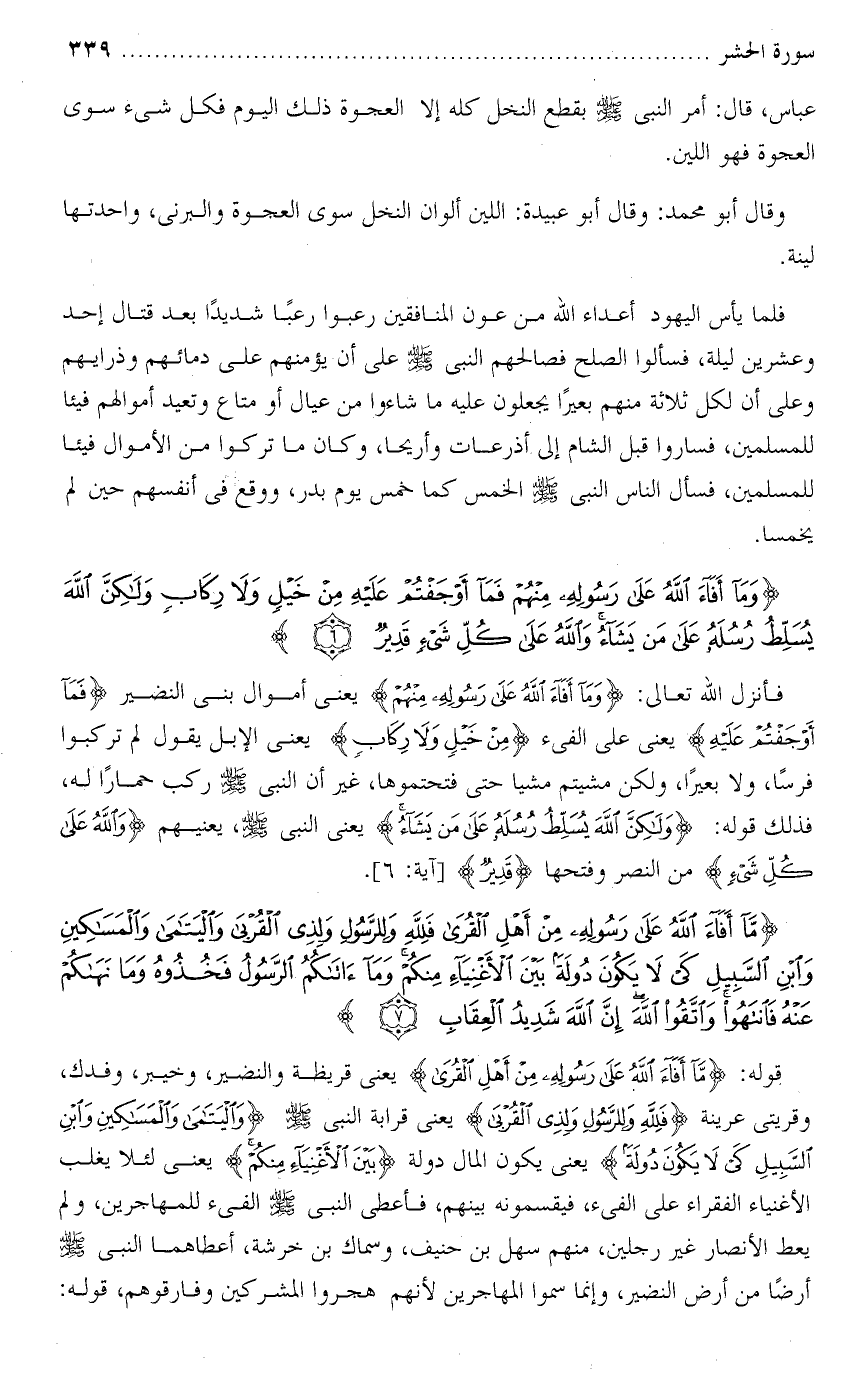 سورة الحشر ........................................................................ ٣٣٩
عباس، قال: أمر النبى ﷺ بقطع النخل كله إلا العجوة ذلك اليوم فكل شىء سوى
العجوة فهو اللين.
وقال أبو محمد: وقال أبو عبيدة: اللين ألوان النخل سوى العجوة والبرنى، واحدتها
لينة.
فلما يأس اليهود أعداء الله من عون المنافقين رعبوا رعبًا شديدًا بعد قتال إحد
وعشرين ليلة، فسألوا الصلح فصالحهم النبى ﷺ على أن يؤمنهم على دمائهم وذرايهم
وعلى أن لكل ثلاثة منهم بعيرًا يجعلون عليه ما شاءوا من عيال أو متاع وتعيد أموالهم فيئا
للمسلمين، فساروا قبل الشام إلى أذرعات وأريحا، وكان ما تركوا من الأموال فيئا
للمسلمين، فسأل الناس النبى ﷺ الخمس كما خمس يوم بدر، ووقع فى أنفسهم حين لم
يخمسا.
﴿وَمَآ أَفَآءَ ٱللَّهُ عَلَىٰ رَسُولِهِۦ مِنْهُمْ فَمَآ أَوْجَفْتُمْ عَلَيْهِ مِنْ خَيْلٍ وَلَا رِكَابٍ وَلَٰكِنَّ ٱللَّهَ
يُسَلِّطُ رُسُلَهُۥ عَلَىٰ مَن يَشَآءُ ۚ وَٱللَّهُ عَلَىٰ كُلِّ شَىْءٍ قَدِيرٌ ٦ ﴾
فأنزل الله تعالى: ﴿وَمَآ أَفَآءَ ٱللَّهُ عَلَىٰ رَسُولِهِۦ مِنْهُمْ﴾ يعنى أموال بنى النضير ﴿فَمَآ
أَوْجَفْتُمْ عَلَيْهِ﴾ يعنى على الفىء ﴿مِنْ خَيْلٍ وَلَا رِكَابٍ﴾ يعنى الإبل يقول لم تركبوا
فرسًا، ولا بعيرًا، ولكن مشيتم مشيا حتى فتحتموها، غير أن النبى ﷺ ركب حمارًا له،
فذلك قوله: ﴿وَلَٰكِنَّ ٱللَّهَ يُسَلِّطُ رُسُلَهُۥ عَلَىٰ مَن يَشَآءُ ۚ﴾ يعنى النبى ﷺ، يعنيهم ﴿وَٱللَّهُ عَلَىٰ
كُلِّ شَىْءٍ﴾ من النصر وفتحها ﴿قَدِيرٌ﴾ [آية: ٦].
﴿مَّآ أَفَآءَ ٱللَّهُ عَلَىٰ رَسُولِهِۦ مِنْ أَهْلِ ٱلْقُرَىٰ فَلِلَّهِ وَلِلرَّسُولِ وَلِذِى ٱلْقُرْبَىٰ وَٱلْيَتَٰمَىٰ وَٱلْمَسَٰكِينِ
وَٱبْنِ ٱلسَّبِيلِ كَىْ لَا يَكُونَ دُولَةًۢ بَيْنَ ٱلْأَغْنِيَآءِ مِنكُمْ ۚ وَمَآ ءَاتَىٰكُمُ ٱلرَّسُولُ فَخُذُوهُ وَمَا نَهَىٰكُمْ
عَنْهُ فَٱنتَهُوا۟ ۚ وَٱتَّقُوا۟ ٱللَّهَ ۖ إِنَّ ٱللَّهَ شَدِيدُ ٱلْعِقَابِ ٧ ﴾
قوله: ﴿مَّآ أَفَآءَ ٱللَّهُ عَلَىٰ رَسُولِهِۦ مِنْ أَهْلِ ٱلْقُرَىٰ﴾ يعنى قريظة والنضير، وخيبر، وفدك،
وقريتى عرينة ﴿فَلِلَّهِ وَلِلرَّسُولِ وَلِذِى ٱلْقُرْبَىٰ﴾ يعنى قرابة النبى ﷺ ﴿وَٱلْيَتَٰمَىٰ وَٱلْمَسَٰكِينِ وَٱبْنِ
ٱلسَّبِيلِ كَىْ لَا يَكُونَ دُولَةًۢ﴾ يعنى يكون المال دولة ﴿بَيْنَ ٱلْأَغْنِيَآءِ مِنكُمْ ۚ﴾ يعنى لئلا يغلب
الأغنياء الفقراء على الفىء، فيقسمونه بينهم، فأعطى النبى ﷺ الفىء للمهاجرين، ولم
يعط الأنصار غير رجلين، منهم سهل بن حنيف، وسماك بن خرشة، أعطاهما النبى ﷺ
أرضًا من أرض النضير، وإنما سموا المهاجرين لأنهم هجروا المشركين وفارقوهم، قوله: